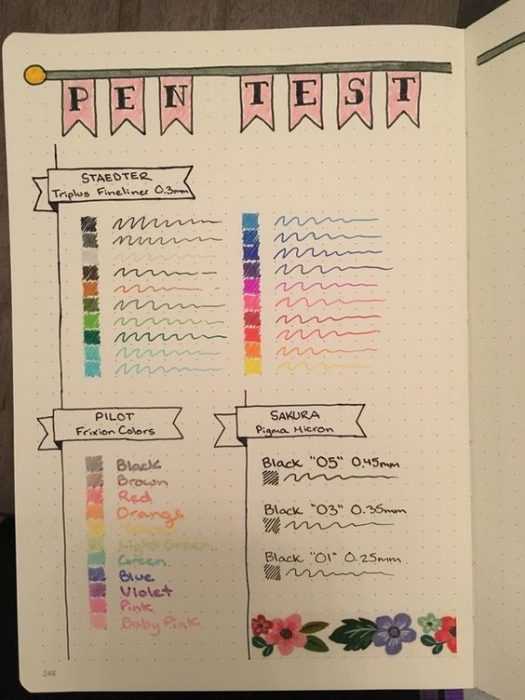 PEN TEST
STAEDTER
Triplus Fineliner 0.3mm
PILOT
Frixion Colors
Black
Brown
Red
Orange
Light Green
Green
Blue
Violet
Pink
Baby Pink
SAKURA
Pigma Micron
Black "05" 0.45mm
Black "03" 0.35mm
Black "01" 0.25mm